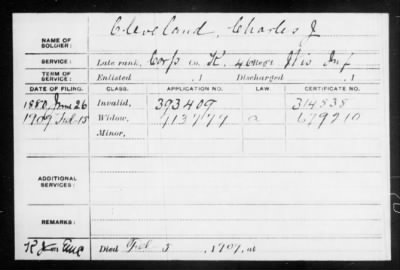 NAME OF SOLDIER: Cleveland, Charles J
SERVICE: Late rank, Corp Co. K, 46 Reg't Wis Inf
TERM OF SERVICE: Enlisted , 1 Discharged , 1
DATE OF FILING. CLASS. APPLICATION NO. LAW CERTIFICATE NO.
1880, June 26 Invalid, 393409 314838
1909 Feb 15 Widow, 913777 a 679210
Minor,
ADDITIONAL SERVICES:
REMARKS:
Died Feb 3, 1909, at